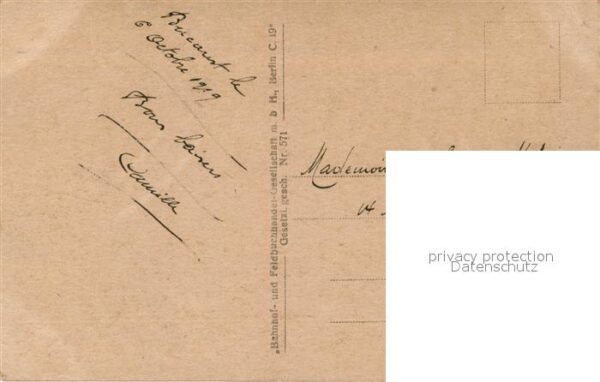 Bucarest le
6 Octobre 1919
Bons baisers
Camille
„Bahnhof- und Feldbuchhandel-Gesellschaft m. b H., Berlin C. 19"
Gesetzl. gesch. Nr. 571
Mademoi
14
privacy protection
Datenschutz